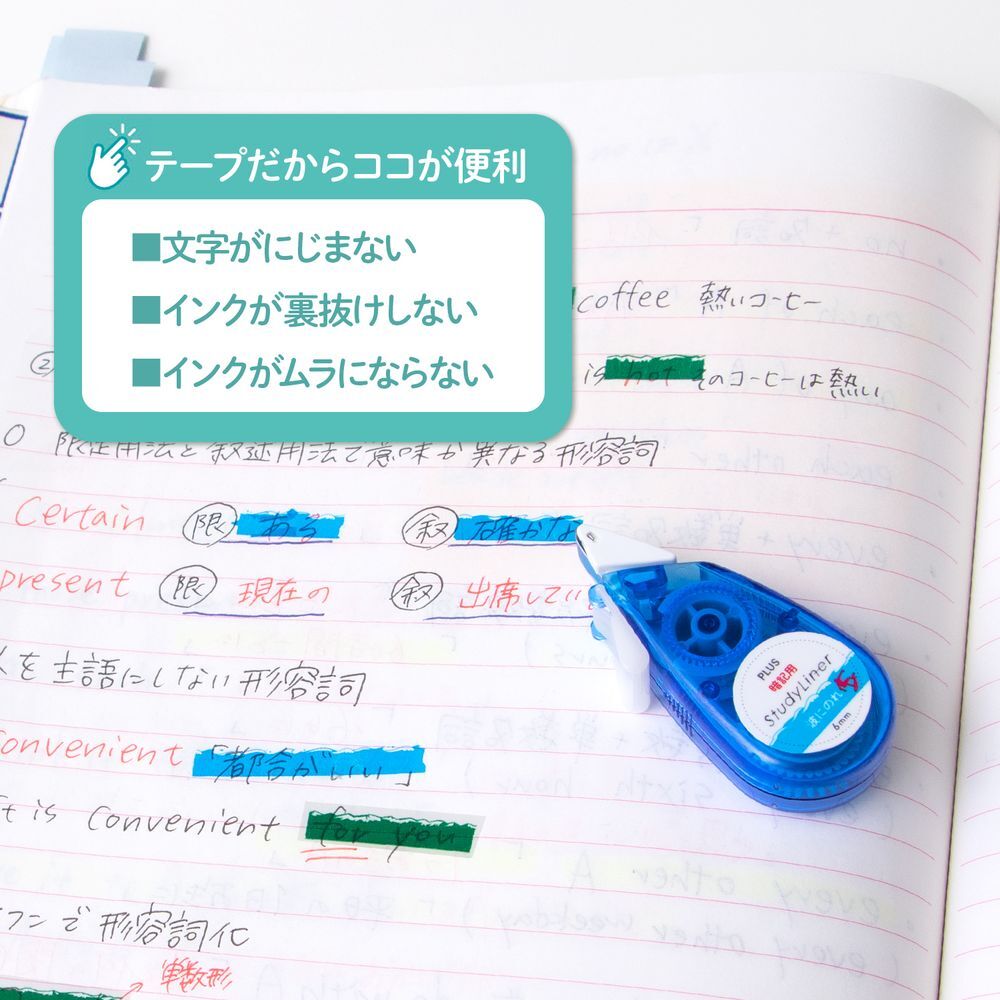 テープだからココが便利
■文字がにじまない
■インクが裏抜けしない
■インクがムラにならない
coffee 熱いコーヒー
② is hot そのコーヒーは熱い
○ 限定用法と叙述用法で意味が異なる形容詞
Certain 限 ある 叙 確かな
present 限 現在の 叙 出席してい
を主語にしない形容詞
convenient 「都合がいい」
It is convenient for you
で形容詞化
単数形
PLUS
暗記用
StudyLiner
波にのれ
6mm